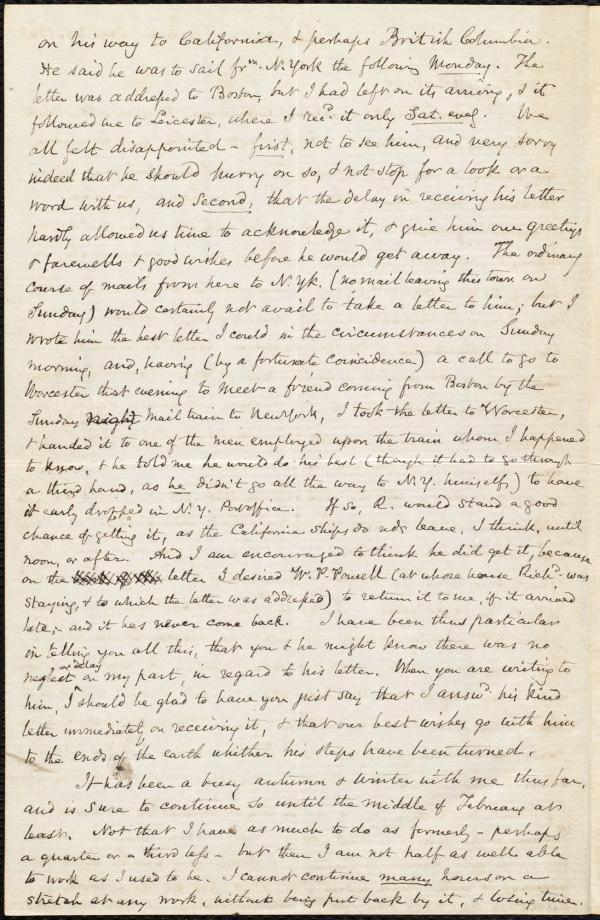 on his way to California, & perhaps British Columbia.
He said he was to sail frm. N. York the following Monday. The
letter was addressed to Boston, but I had left on its arriving, & it
followed me to Leicester, where I recd. it only Sat. eveg. We
all felt disappointed – first, not to see him, and very sorry
indeed that he should hurry on so, & not stop for a look or a
word with us, and second, that the delay in receiving his letter
hardly allowed us time to acknowledge it, & give him our greetings
& farewells & good wishes before he would get away. The ordinary
course of mails from here to N. Yk. (no mail leaving this town on
Sunday) would certainly not avail to take a letter to him; but I
wrote him the best letter I could in the circumstances on Sunday
morning, and, having (by a fortunate coincidence) a call to go to
Worcester that evening to meet a friend coming from Boston by the
Sunday night Mail train to New York, I took the letter to Worcester,
& handed it to one of the men employed upon the train whom I happened
to know, & he told me he would do his best (though it had to go through
a third hand, as he didn't go all the way to N.Y. himself,) to have
it early dropped in N.Y. Post office. If so, R. would stand a good
chance of getting it, as the California ships do not leave, I think, until
noon, or after. And I am encouraged to think he did get it, because
on the letter I desired W. P. Powell (at whose house Richd. was
staying, & to which the letter was addressed) to return it to me, if it arrived
late; – and it has never come back. I have been thus particular
in telling you all this, that you & he might know there was no
neglect or delay on my part, in regard to his letter. When you are writing to
him, I should be glad to have you just say that I answd. his kind
letter immediately on receiving it, & that our best wishes go with him
to the ends of the earth whither his steps have been turned.
It has been a busy autumn & winter with me thus far,
and is sure to continue so until the middle of February at
least. Not that I have as much to do as formerly – perhaps
a quarter or a third less – but then I am not half as well able
to work as I used to be. I cannot continue many hours on a
stretch at any work, without being put back by it, & losing time.